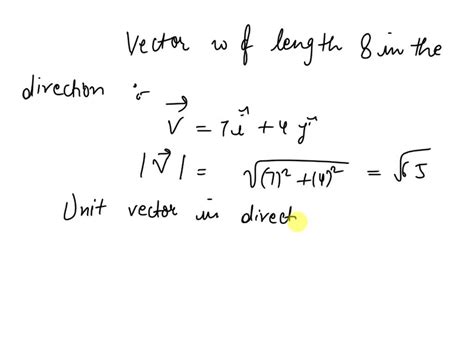 Vector w of length 8 in the
direction :-
V⃗ = 7i^ + 4j^
|V⃗| = √(7)² + (4)² = √65
Unit vector in direct